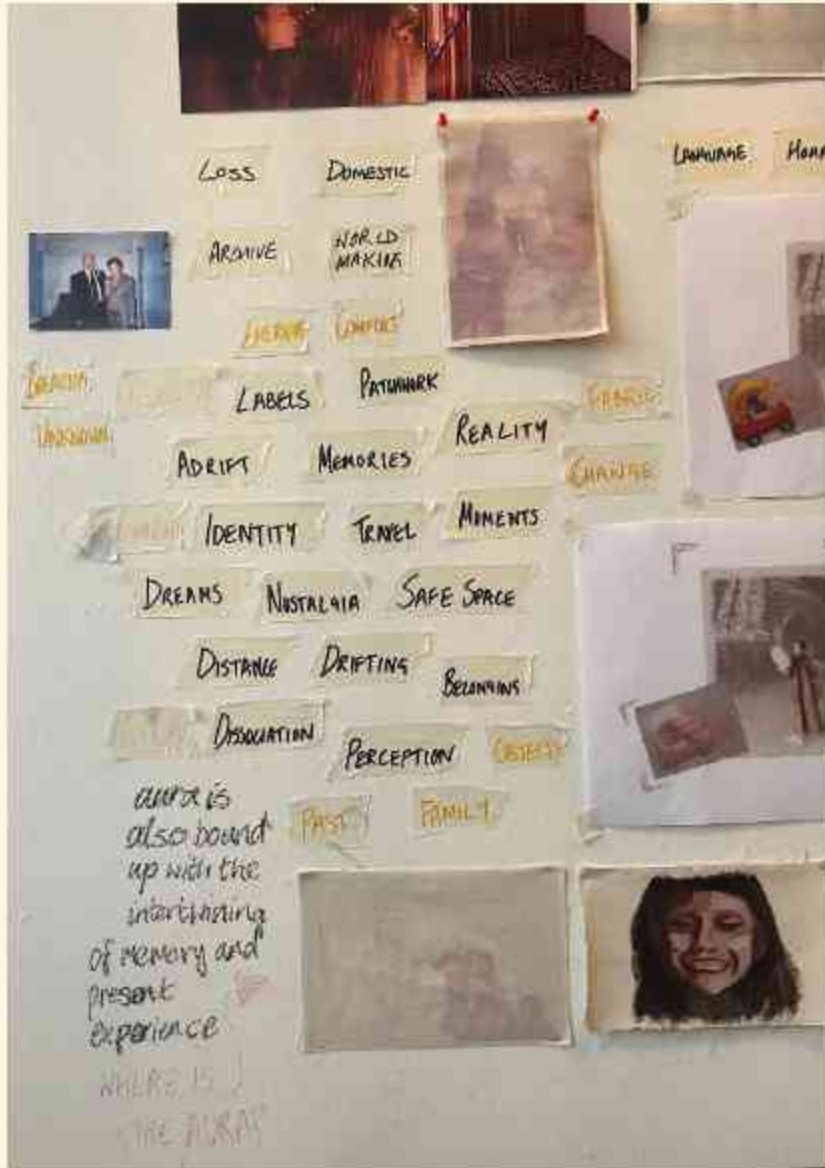 LOSS DOMESTIC
LANGUAGE
ARCHIVE WORLD
MAKING
COMFORT
UNKNOWN
LABELS PATCHWORK
FABRIC
REALITY
ADRIFT MEMORIES
CHANGE
IDENTITY TRAVEL MOMENTS
DREAMS NOSTALGIA SAFE SPACE
DISTANCE DRIFTING
BELONGING
DISSOCIATION
PERCEPTION OBJECTS
PAST FAMILY
aura is
also bound
up with the
intertwining
of memory and
present
experience
WHERE IS
THE AURA?